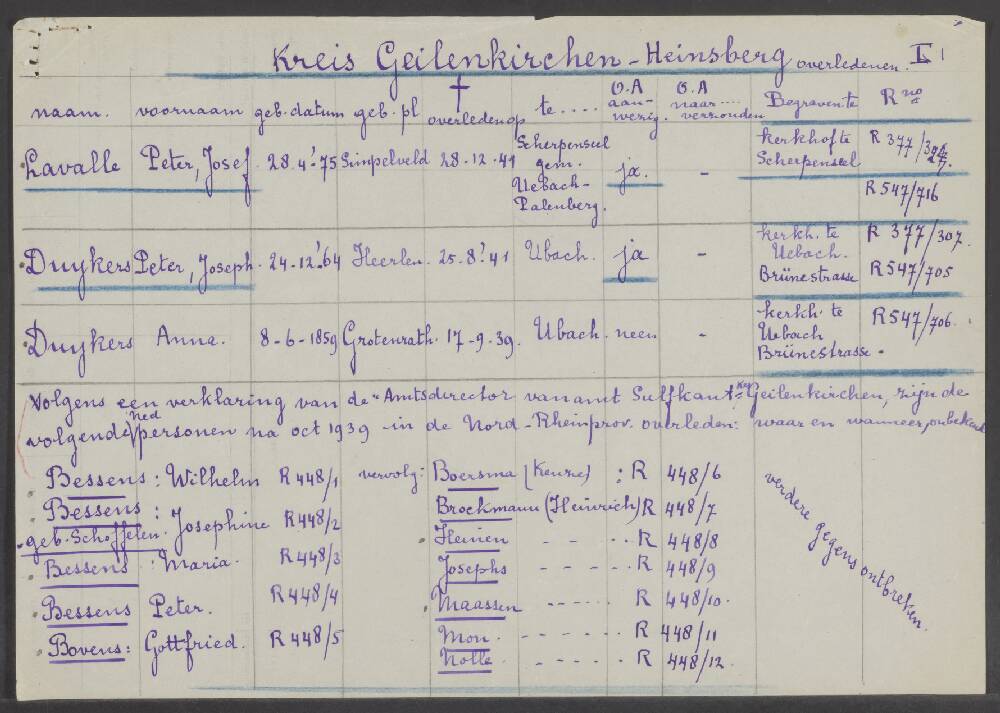 Kreis Geilenkirchen - Heinsberg overledenen. I
naam. voornaam geb. datum geb. pl † overleden op te .... O.A aanwezig. O.A naar .... verzonden Begraven te R no
Lavalle Peter, Josef. 28.4.'75 Simpelveld 28.12.41 Scherpenseel gem. Uebach-Palenberg. ja. - kerkhof te Scherpenseel R 377/
R 547/716
Duykers Peter, Joseph. 24-12.'64 Heerlen. 25.8.'41 Ubach. ja - kerkh. te Uebach. Brünestrasse R 377/307.
R 547/705
Duykers Anna. 8-6-1859 Grotenrath. 17-9.39. Ubach. neen - kerkh. te Uebach Brünestrasse. R 547/706.
Volgens een verklaring van de Amtsdirector van amt Selfkant Geilenkirchen, zijn de
volgende ned personen na oct 1939 in de Nord-Rheinprov. overleden: waar en wanneer, onbekend
Bessens: Wilhelm R 448/1 vervolg: Boersma (Kenze) : R 448/6
Bessens: geb. Schoffelen. Josephine R 448/2 Brockmann (Heinrich) R 448/7
Heinen - - .. R 448/8
Bessens: Maria. R 448/3 Josephs - - - - . R 448/9
Bessens Peter. R 448/4 Maassen - - - ... R 448/10.
Bovens: Gottfried. R 448/5 Mon. - - - - - - R 448/11
Nolle. - - - - . R 448/12.
verdere gegens ontbreken.